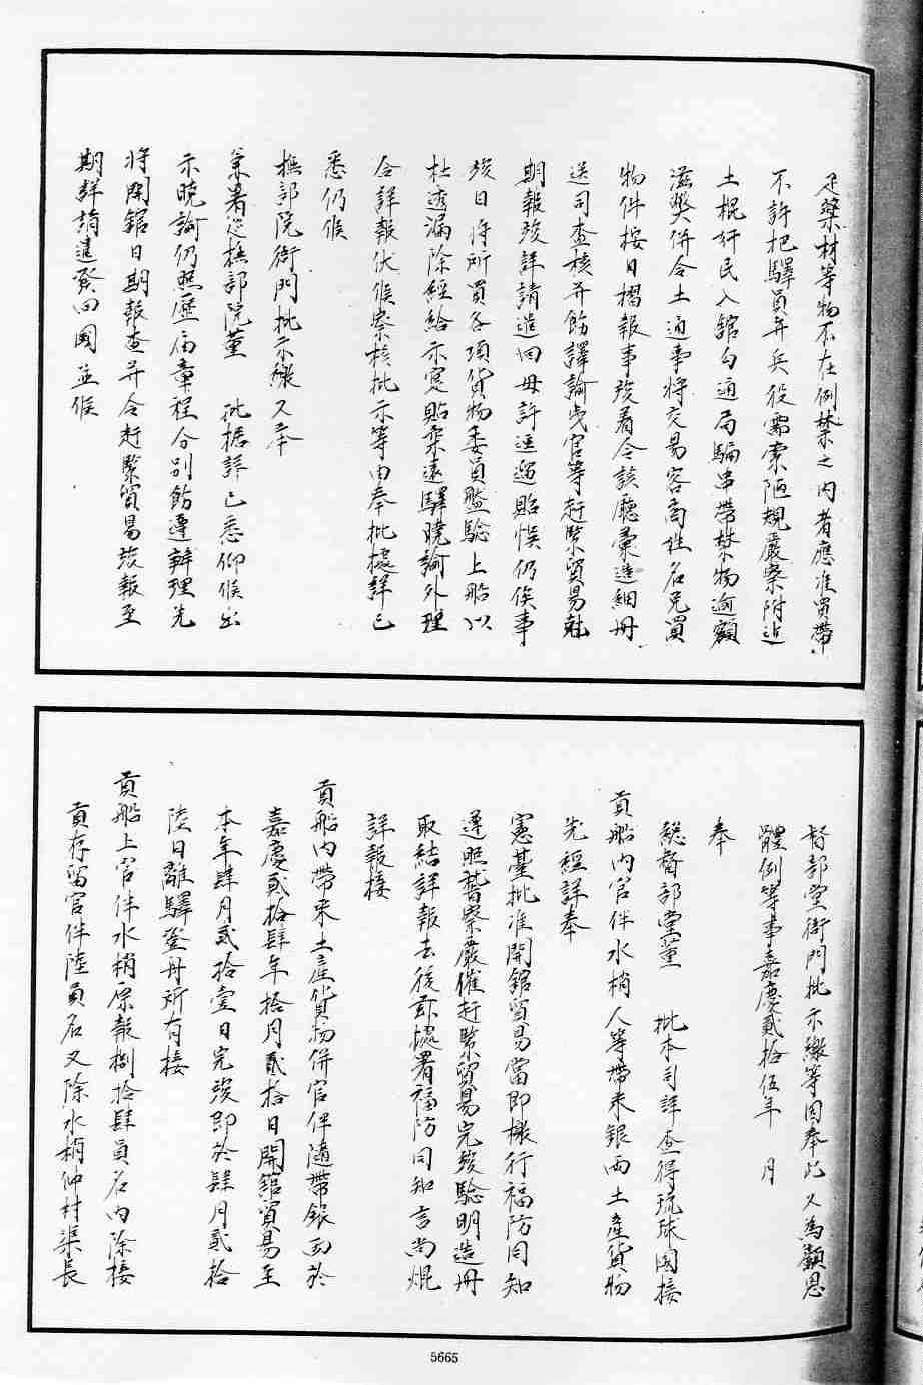 疋藥材等物不在例禁之內者應准買帶
不許把驛員弁兵役需索陋規嚴察附近
土棍奸民入館勾通局騙串帶禁物逾額
滋獘併令土通事將交易客商姓名兌買
物件按日摺報事竣着令該廳彙造細冊
送司查核并飭譯諭曵官等赶緊貿易尅
期報竣詳請遣回毋許逗遛貽悞仍俟事
竣日將所買各項貨物委員盤騐上船以
杜透漏除經給示寔貼柔遠驛曉諭外理
合詳報伏候察核批示等由奉批據詳已
悉仍候
撫部院衙門批示繳又奉
兼署巡撫部院董 批據詳已悉仰候出
示曉諭仍照歷屆章程分別飭遵辦理先
將開館日期報查并令赶緊貿易竣報至
期詳請遣發回國並候
督部堂衙門批示繳等因奉此又為顧恩
體例等事嘉慶貳拾伍年 月
奉
總督部堂董 批本司詳查得琉球國接
貢船內官伴水梢人等帶來銀兩土產貨物
先經詳奉
憲臺批准開館貿易當即檄行福防同知
遵照稽察嚴催赶緊貿易完竣騐明造冊
取結詳報去後茲據署福防同知言尚焜
詳報接
貢船內帶來土產貨物併官伴隨帶銀兩於
嘉慶貳拾肆年拾月貳拾日開館貿易至
本年肆月貳拾壹日完竣即於肆月貳拾
陸日離驛登舟所有接
貢船上官伴水梢原報捌拾肆員名內除接
貢存留官伴陸員名又除水梢仲村渠長
5665